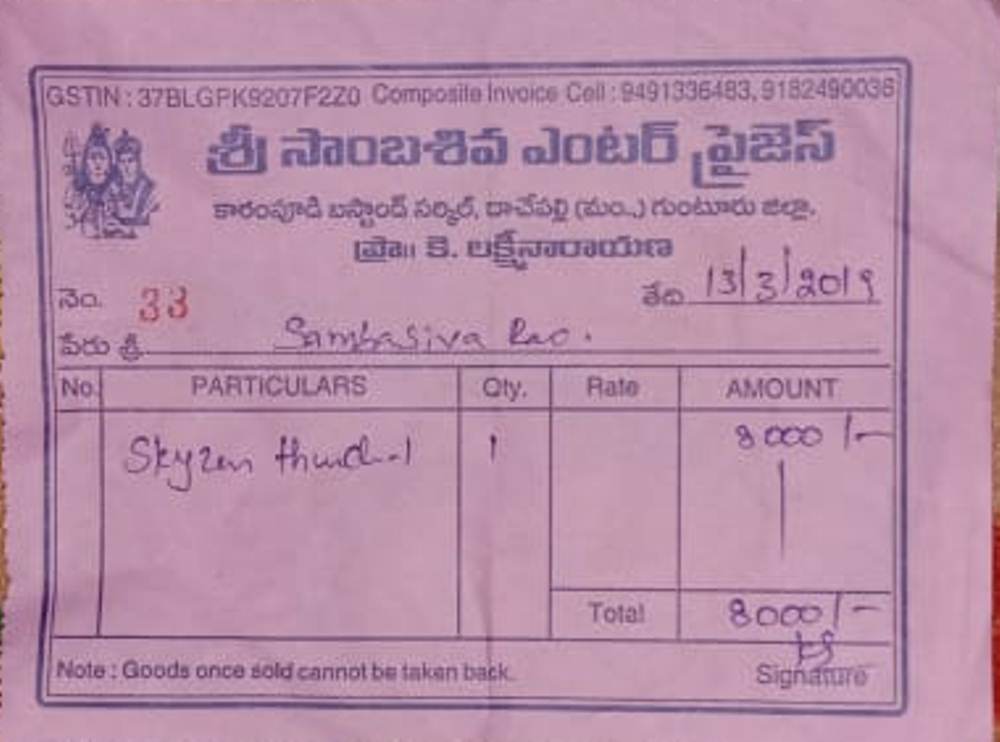 GSTIN : 37BLGPK9207F2Z0 Composite Invoice Cell : 9491336483, 9182490036
శ్రీ సాంబశివ ఎంటర్ ప్రైజెస్
కారంపూడి బస్టాండ్ సర్కిల్, దాచేపల్లి (మం..) గుంటూరు జిల్లా.
ప్రొ॥ కె. లక్ష్మీనారాయణ
నెం. 33 తేది 13/3/2019
పేరు శ్రీ Sambasiva Rao.
No. PARTICULARS Qty. Rate AMOUNT
Skyzen 1 8000/-
Total 8000/-
Note : Goods once sold cannot be taken back.
Signature